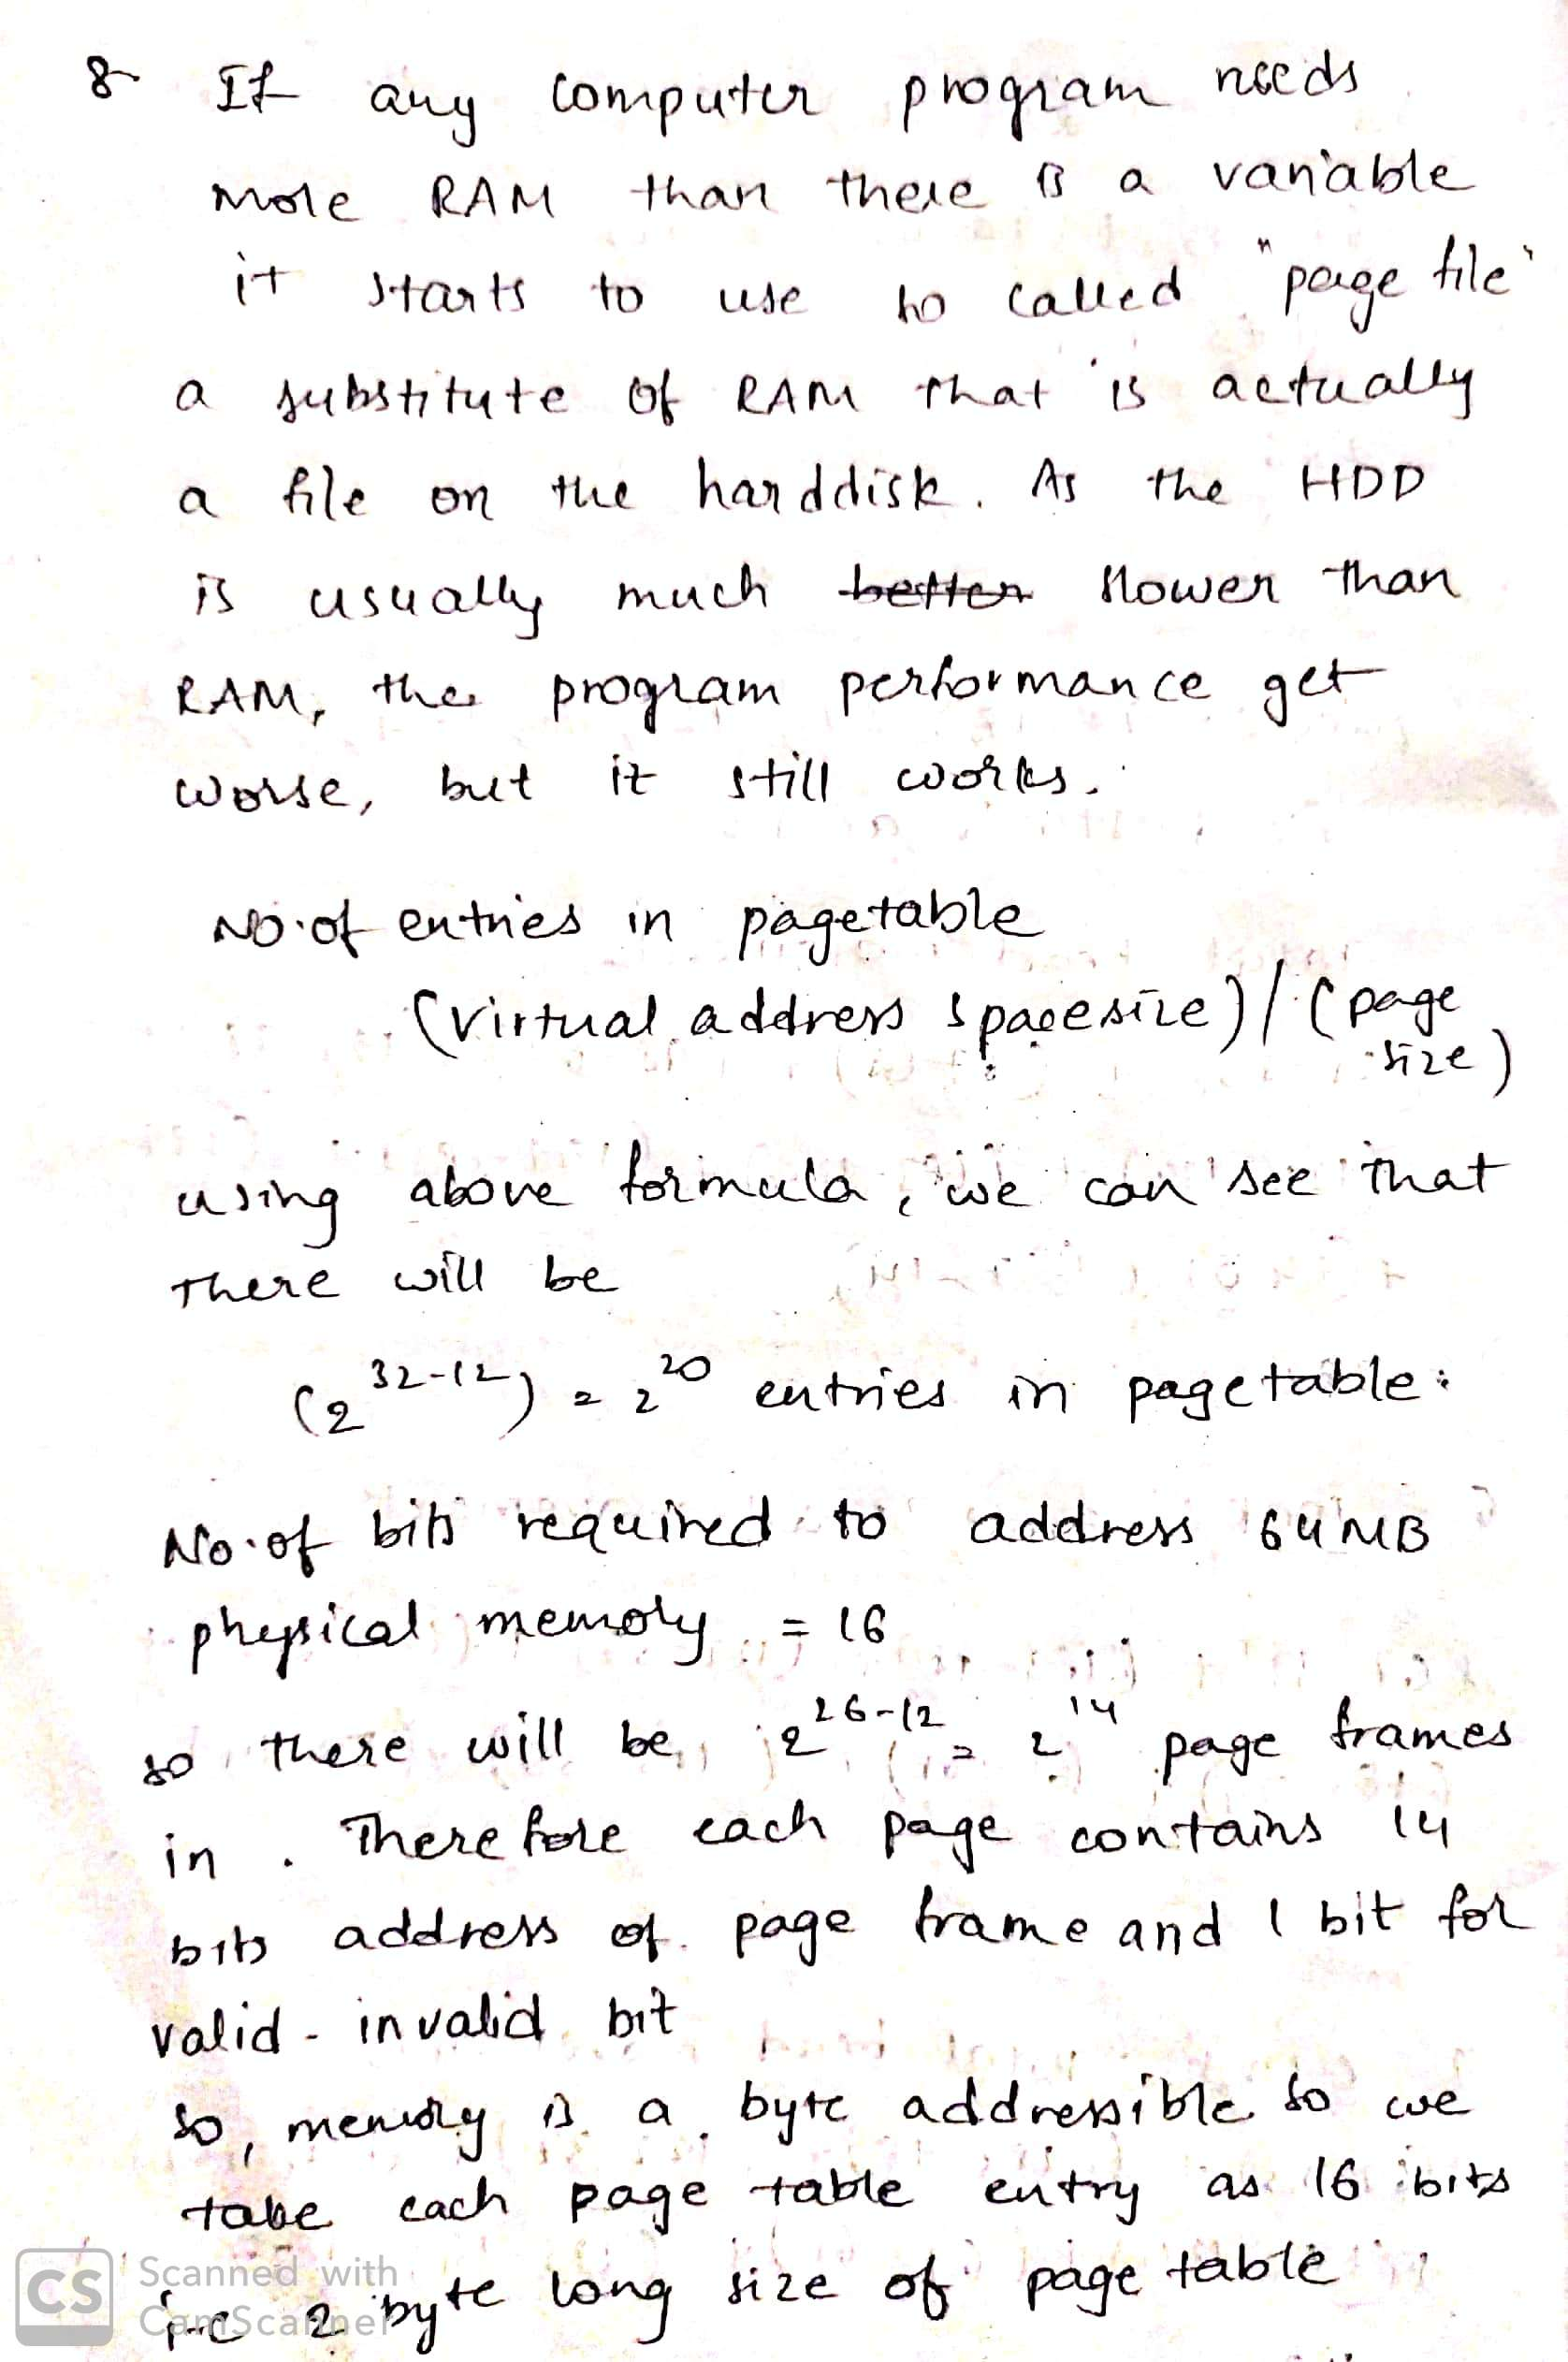 8 If any computer program needs
more RAM than there is a variable
it starts to use so called "page file"
a substitute of RAM that is actually
a file on the harddisk. As the HDD
is usually much better slower than
RAM, the program performance get
worse, but it still works.
No. of entries in pagetable
(virtual address space size) / (page
size)
using above formula, we can see that
There will be
(2^32-12) = 2^20 entries in pagetable.
No. of bits required to address 64MB
physical memory = 16
so there will be 2^26-12 = 2^14 page frames
in . Therefore each page contains 14
bits address of page frame and 1 bit for
valid - invalid bit
so, memory is a byte addressible so we
take each page table entry as 16 bits
i.e 2 byte long size of page table
CS Scanned with
CamScanner